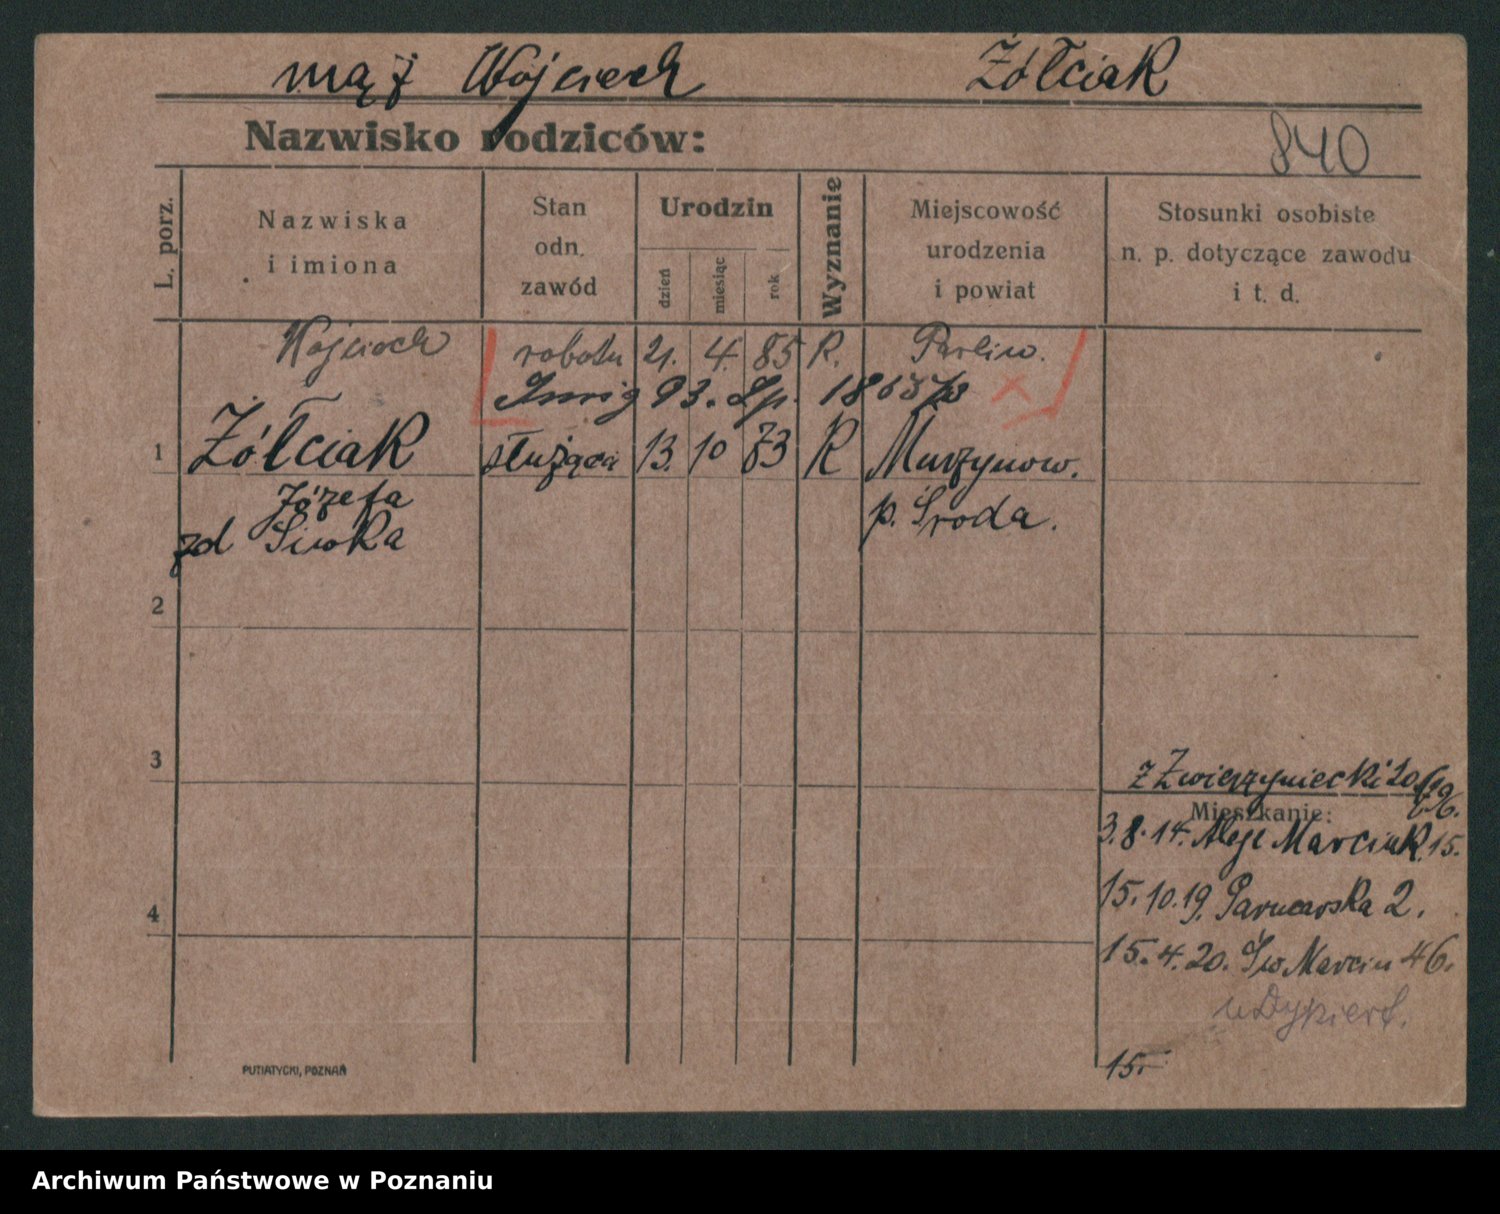 mąż Wojciech Żółciak
Nazwisko rodziców:
840
L. porz.
Nazwiska
i imiona
Stan
odn.
zawód
Urodzin
dzień
miesiąc
rok
Wyznanie
Miejscowość
urodzenia
i powiat
Stosunki osobiste
n. p. dotyczące zawodu
i t. d.
Wojciech robotn 21. 4. 85 R.
93.
1 Żółciak służąca 13. 10 83 R Murzynow.
Józefa p. Środa.
zd Siwka
2
3
z Zwierzyniecki 20
Mieszkanie:
3.8.14. Aleje Marcink. 15.
4
15.10.19. 2.
15.4.20. Św Marcin 46.
15.
PUTIATYCKI, POZNAŃ
Archiwum Państwowe w Poznaniu